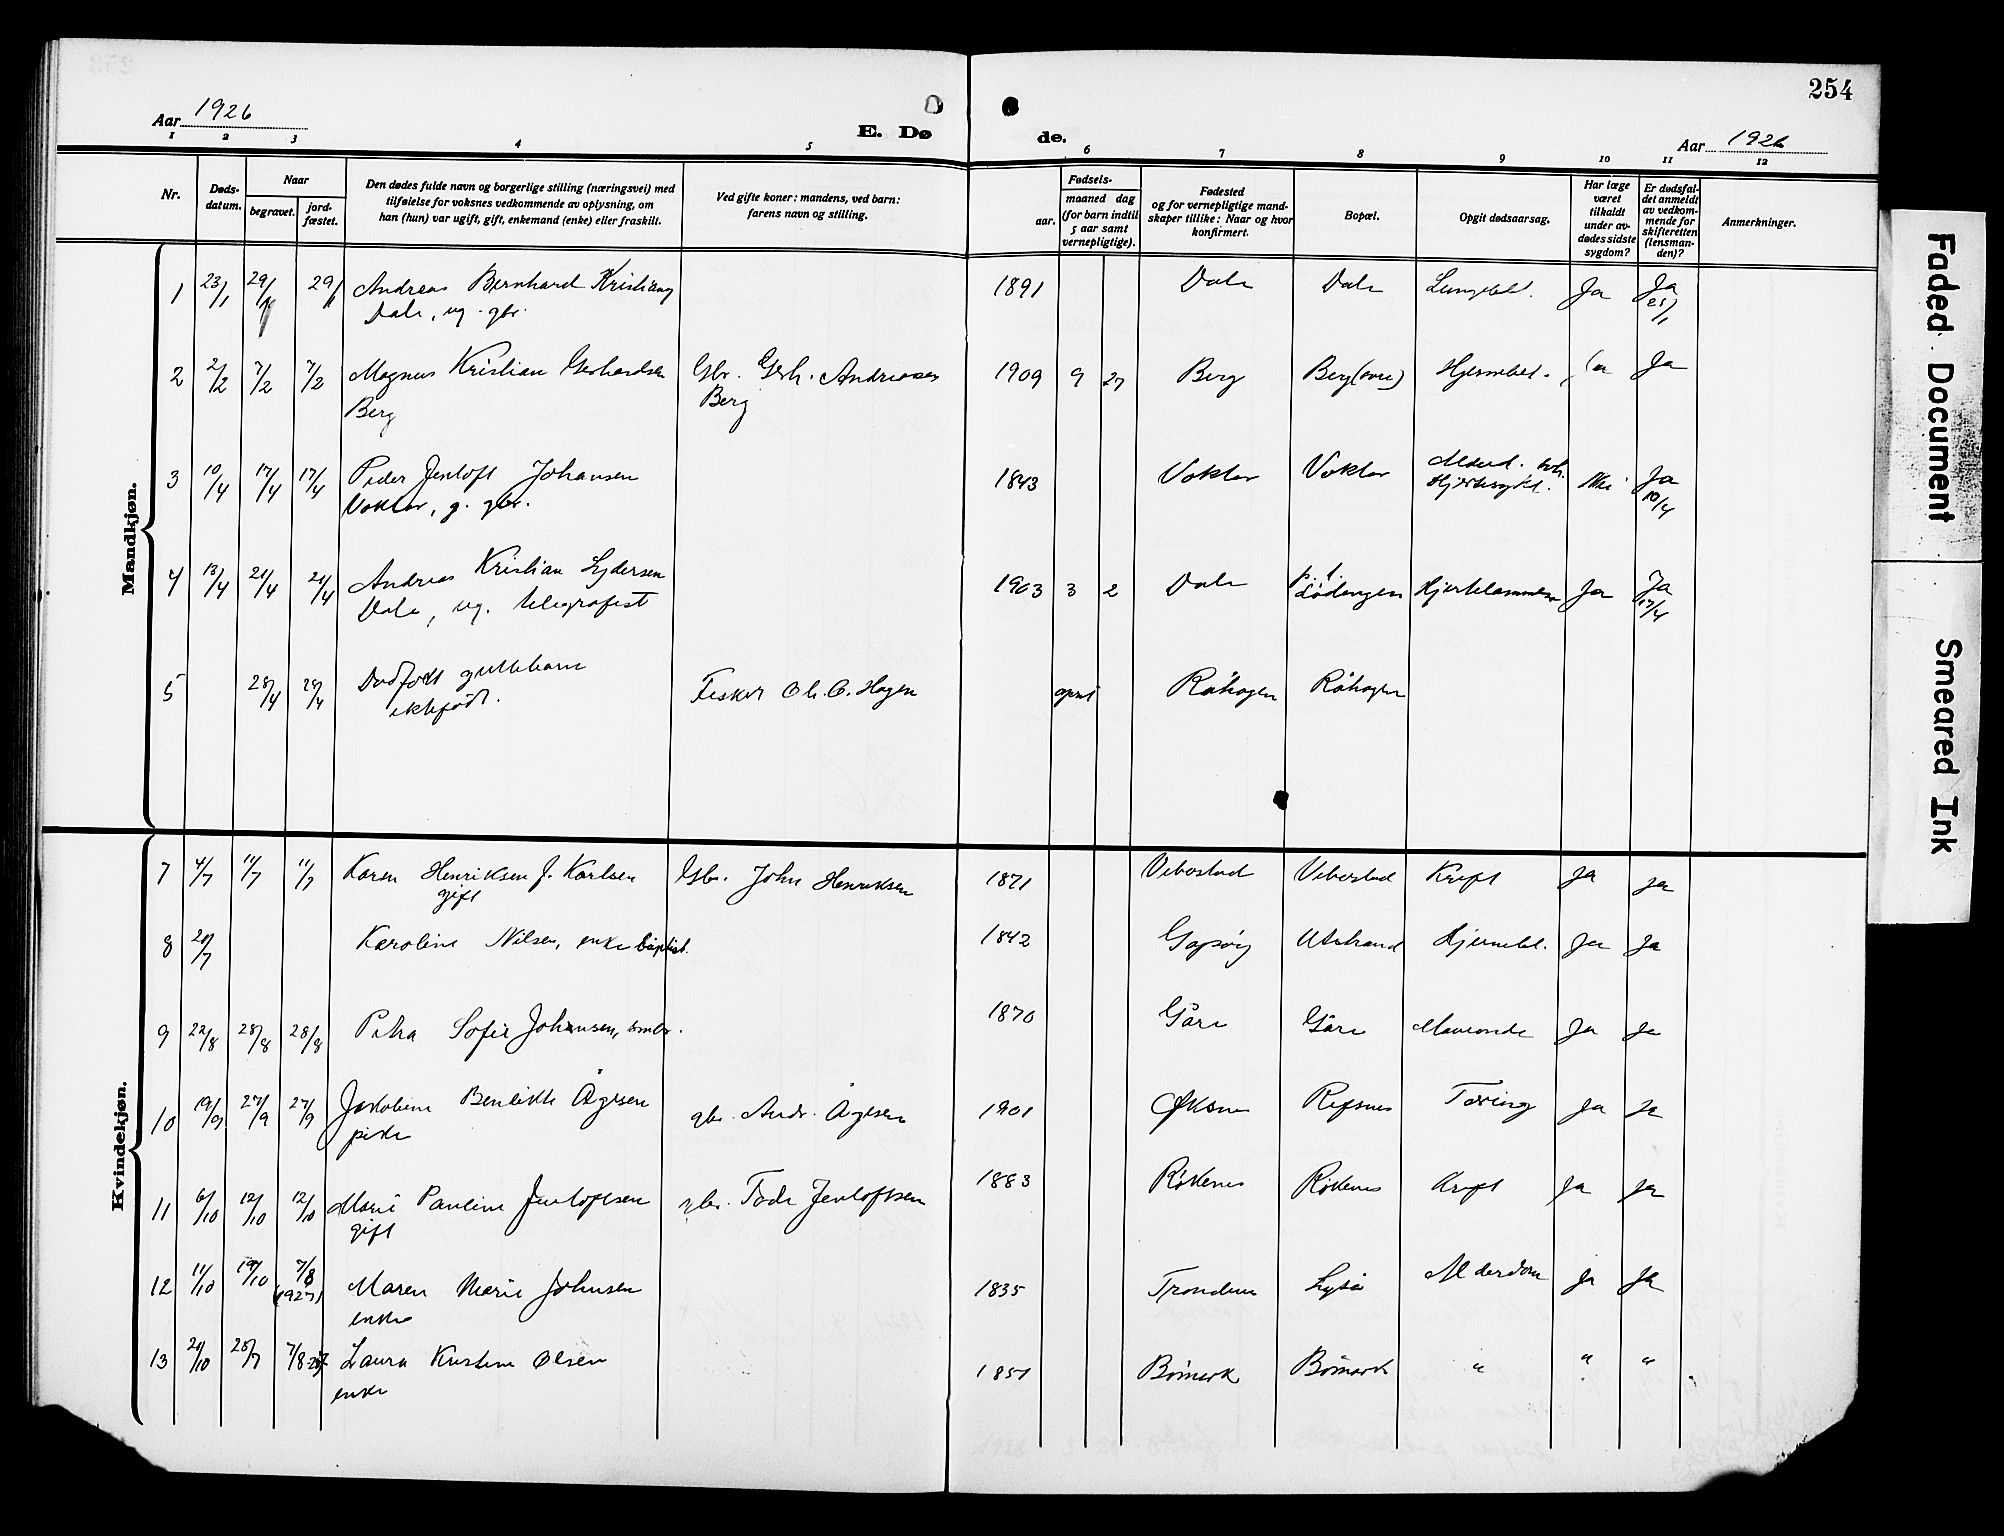 254
Aar 1926
E. Døde.
Aar 1926
1 2 3 4 5 6 7 8 9 10 11 12
Nr.
Døds-datum.
Naar
begravet.
jord-fæstet.
Den dødes fulde navn og borgerlige stilling (næringsvei) med
tilføielse for voksnes vedkommende av oplysning, om
han (hun) var ugift, gift, enkemand (enke) eller fraskilt.
Ved gifte koner: mandens, ved barn:
farens navn og stilling.
Fødsels-
aar.
maaned dag
(for barn indtil
5 aar samt
vernepligtige).
Fødested
og for vernepligtige mand-
skaper tillike: Naar og hvor
konfirmert.
Bopæl.
Opgit dødsaarsag.
Har læge
været
tilkaldt
under av-
dødes sidste
sygdom?
Er dødsfal-
det anmeldt
av vedkom-
mende for
skifteretten
(lensman-
den)?
Anmerkninger.
Mandkjøn.
1 23/1 29/1 29/1 Andreas Bernhard Kristians 1891 Dale Dale Lungebet. Ja Ja
Dale, ug. gbr. 25/1
2 2/2 7/2 7/2 Magnus Kristian Gerhardsen Gbr. Gerh. Andreasen 1909 9 27 Berg Berg (øvre) Hjernebet. Ja Ja
Berg Berg
3 10/4 17/4 17/4 Peder Jentoft Johansen 1843 Voktor Voktor Hjertesykd. Ikke Ja
Voktor, g. gbr. 10/4
4 13/4 21/4 21/4 Andreas Kristian Lydersen 1903 3 2 Dale p.t. Lødingen Hjertelammelse Ja Ja
Dale, ug. telegrafist 17/4
5 28/4 28/4 Dødfødt guttebarn Fisker Ol. C. Hagen april Røkagen Røkagen
ektefødt.
Kvindekjøn.
7 4/7 11/7 11/7 Karen Henriksen f. Karlsen Gbr. John Henriksen 1871 Vebostad Vebostad Kreft Ja Ja
gift
8 20/7 Karoline Nilsen, enke baptist. 1842 Gapøy Utstrand Hjernebl. Ja Ja
9 22/8 28/8 28/8 Petra Sofie Johansen, 1870 Gåre Gåre Mavesonde Ja Ja
10 19/9 27/9 27/9 Jakobine Benedikte Ågesen gbr. Andr. Ågesen 1901 Øksnes Refsnes Tæring Ja Ja
pike
11 6/10 12/10 12/10 Marie Pauline Jentoftsen gbr. Tode Jentoftsen 1883 Røkenes Røkenes Kreft Ja Ja
gift
12 11/10 19/10 7/8 (1927) Maren Marie Johnsen 1835 Trondenes Lyså Alderdom Ja Ja
enke
13 20/10 28/7 7/8-27 Laura Kristine Olsen 1851 Bømark Bømark " " "
enke
Faded Document
Smeared Ink